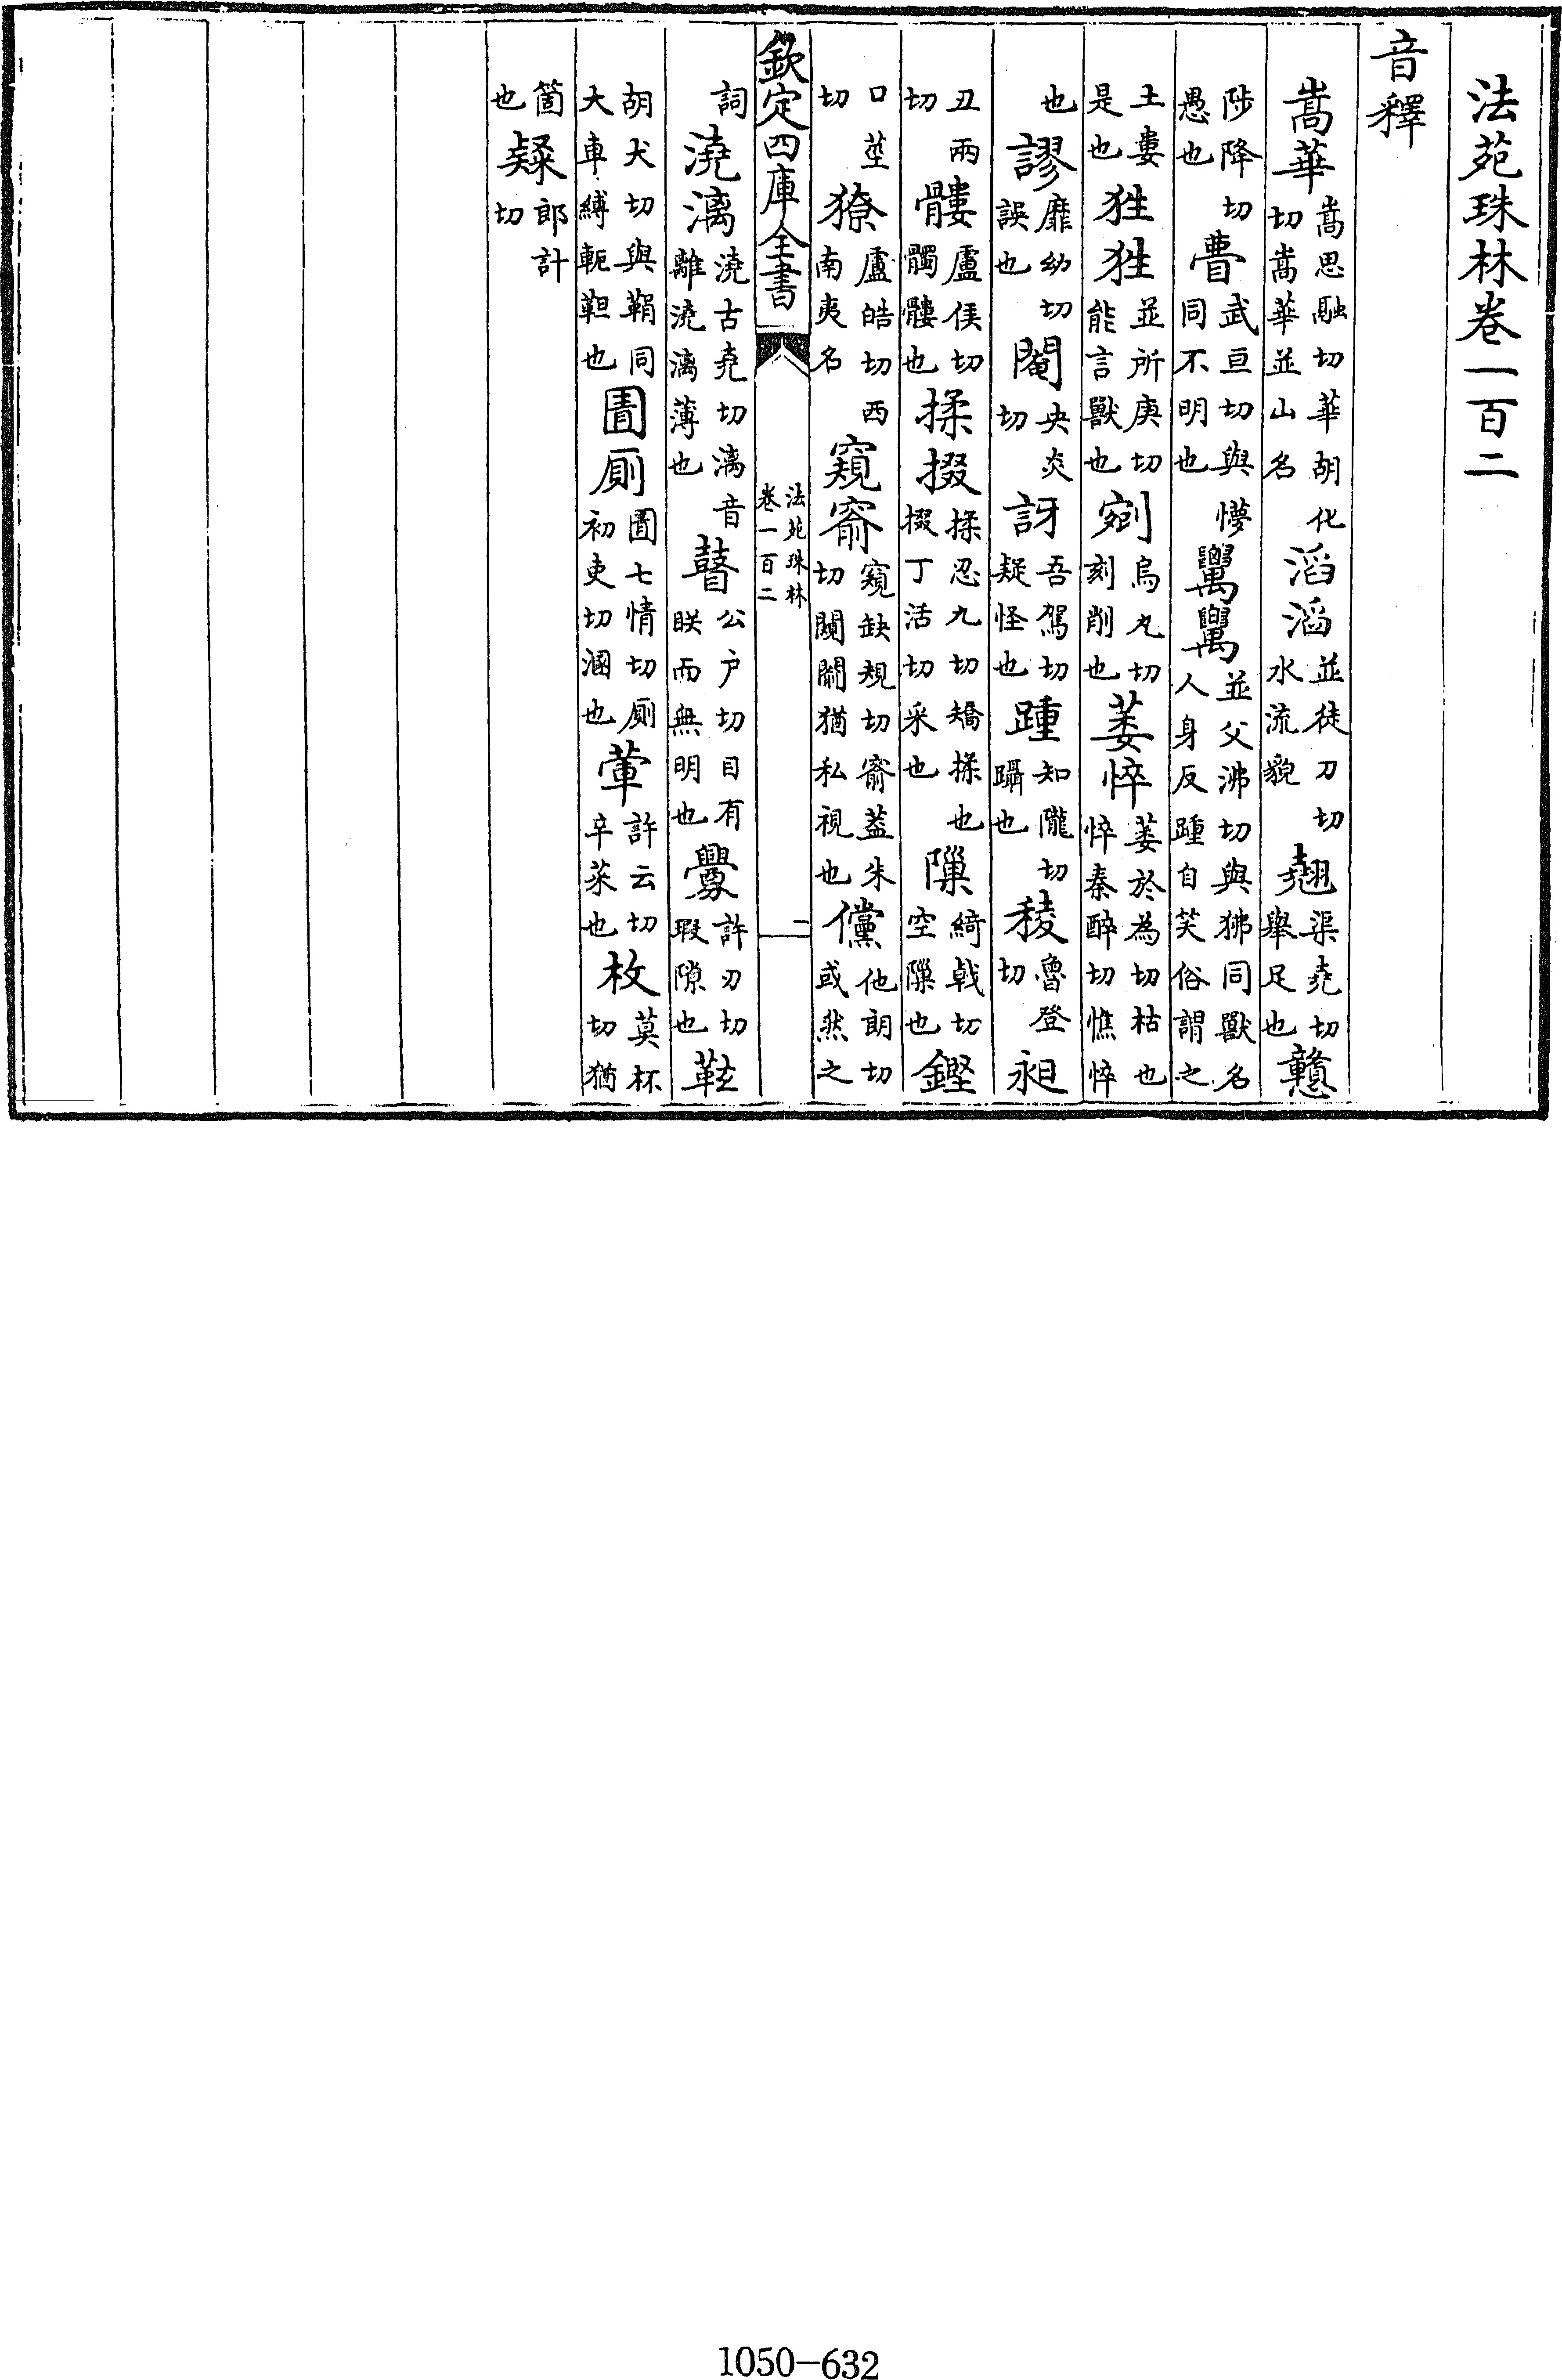 法苑珠林卷一百二
音釋
嵩華嵩思融切華胡化切嵩華並山名滔滔並徒刀切水流貌翹渠堯切舉足也戇
陟降切愚也瞢武亘切與懜同不明也並父沸切與狒同獸名人身反踵自笑俗謂之
土婁是也狌狌並所庚切能言獸也剜烏丸切刻削也萎悴萎於為切枯也悴秦醉切憔悴
也謬靡幼切誤也閹央炎切訝吾駕切疑怪也踵知隴切躡也稜魯登切昶
丑兩切髏盧侯切髑髏也揉掇揉忍九切矯揉也掇丁活切采也隟綺戟切空隟也鏗
口莖切獠盧皓切西南夷名窺窬窺缺規切窬蓋朱切闚猶私視也儻他朗切或然之
欽定四庫全書 法苑珠林卷一百二 一
詞澆漓澆古堯切漓音離澆漓薄也瞽公户切目有眹而無明也釁許刃切瑕隙也䩙
胡犬切與鞙同大車縛軛靼也圊廁圊七情切廁初吏切溷也葷許云切辛菜也枚莫杯切猶
箇也郎計切
1050-632